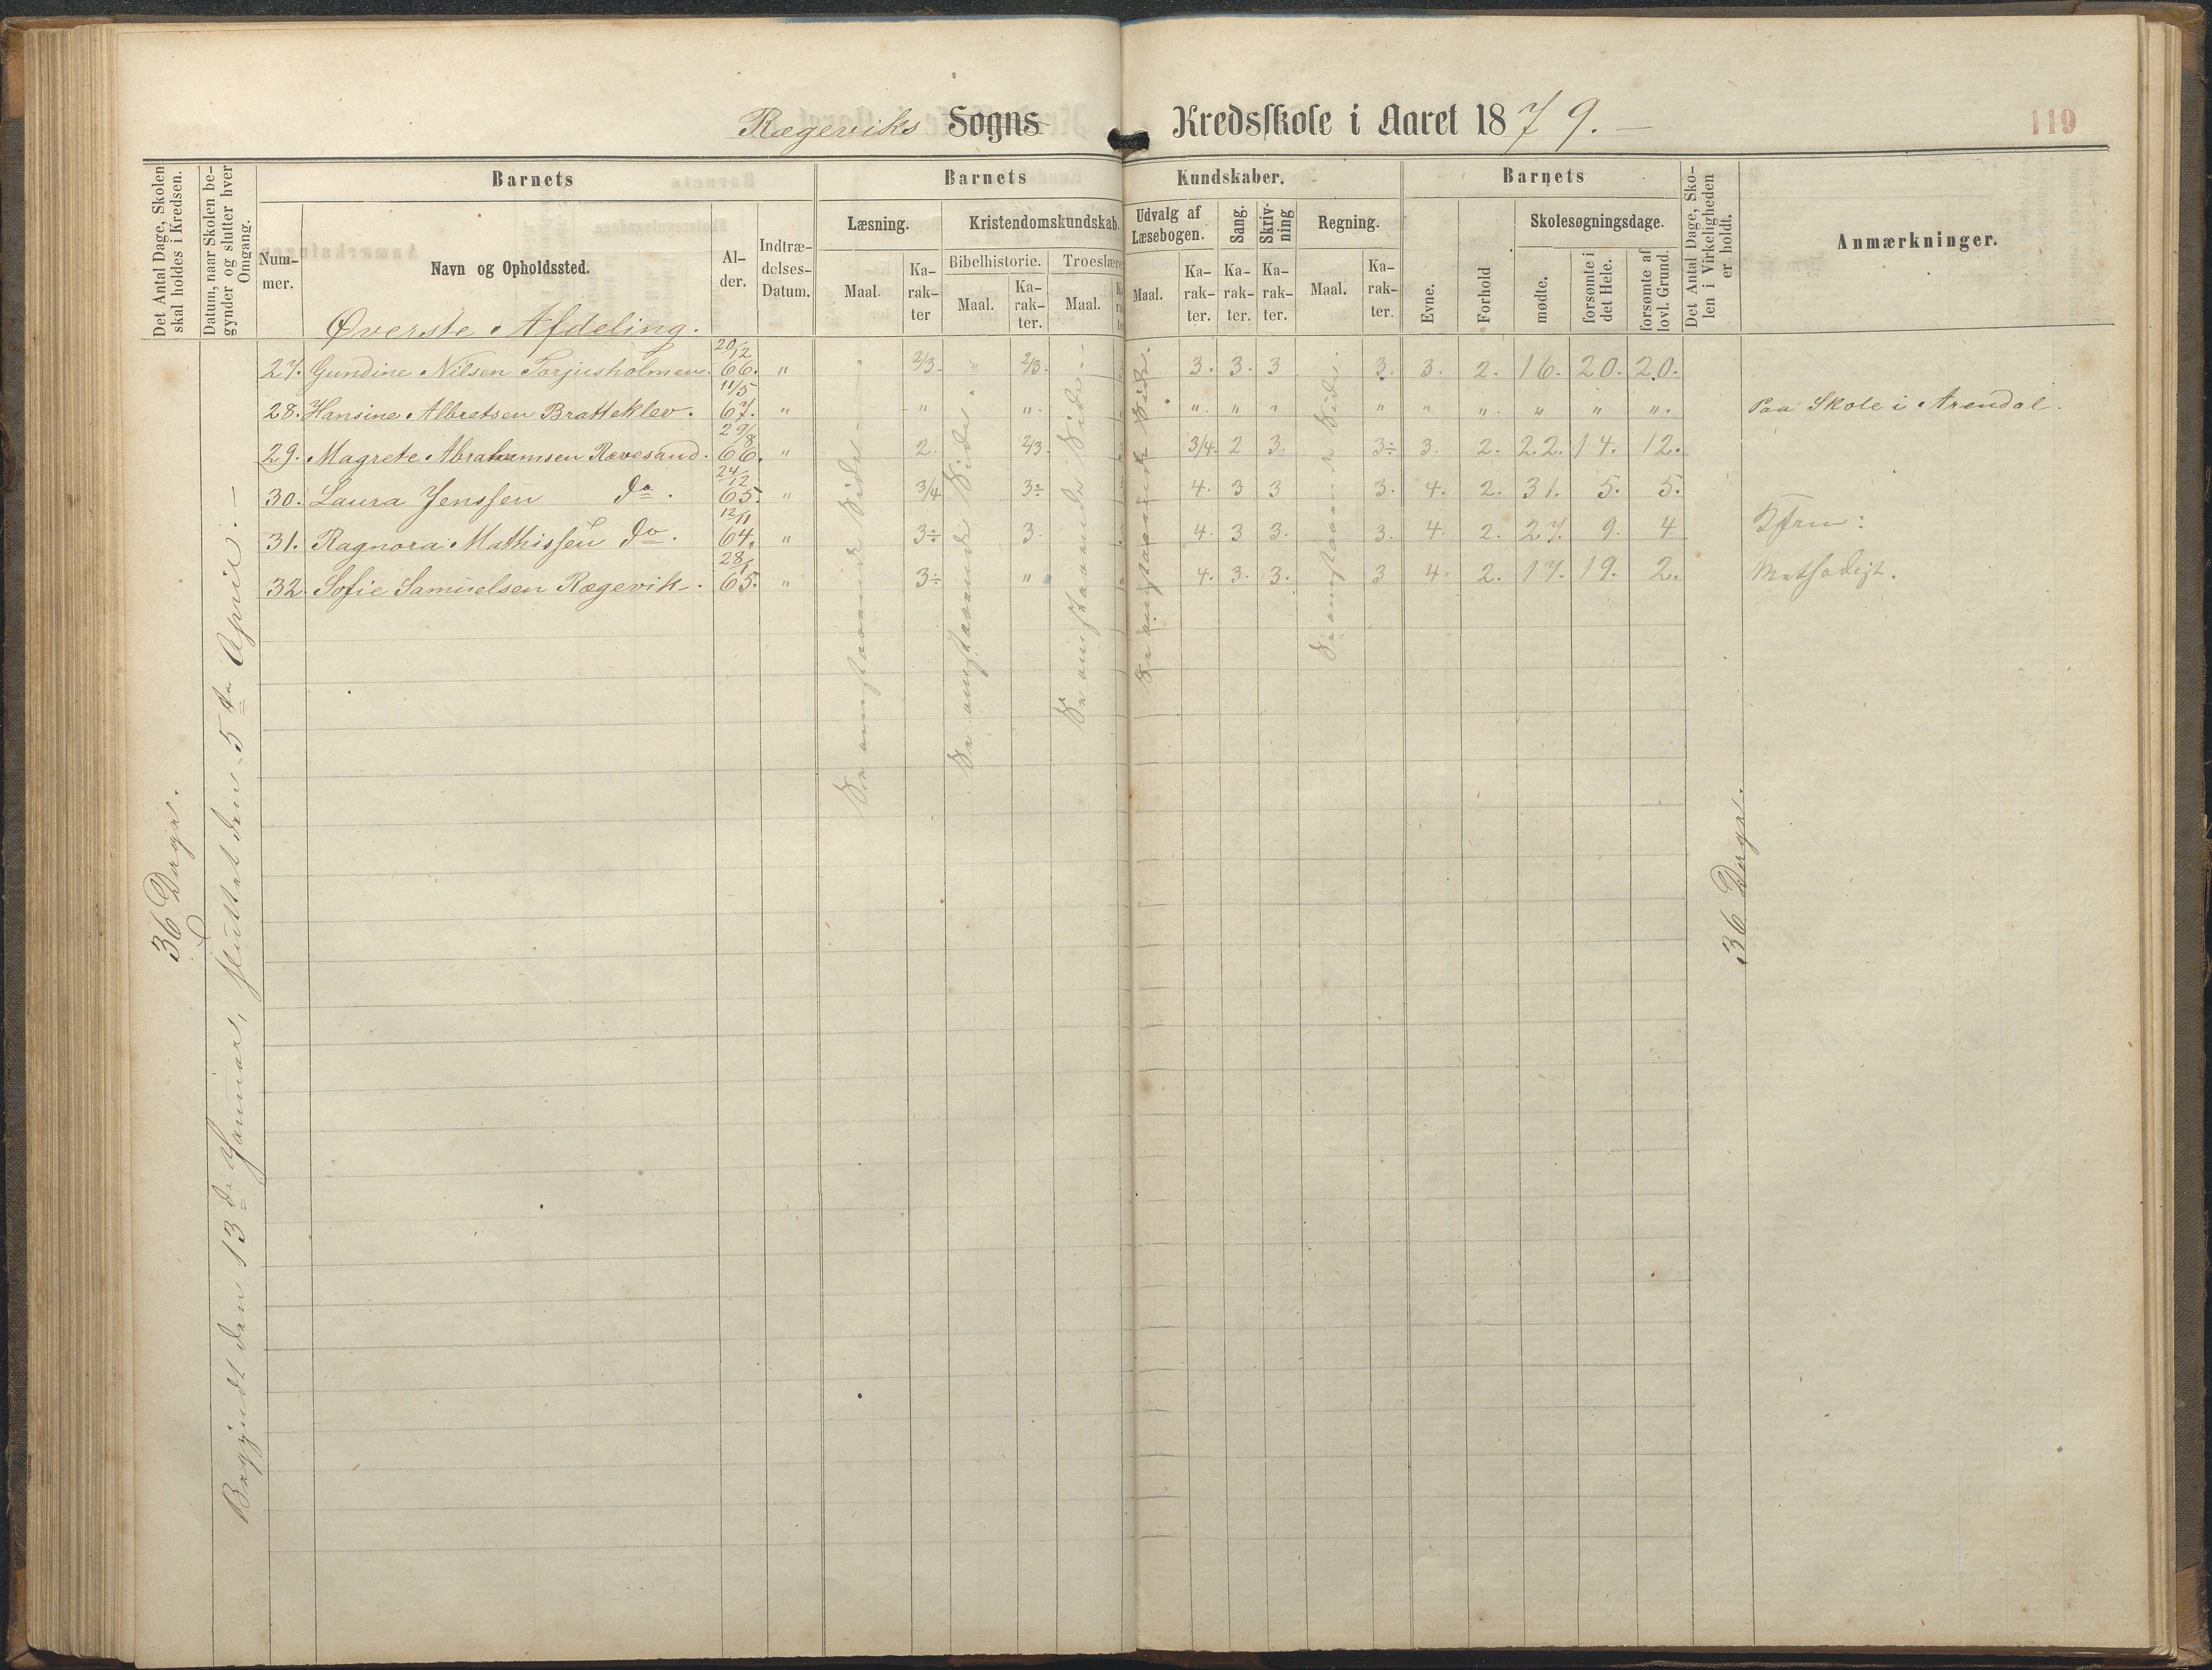 Rægeviks Sogns Kredsskole i Aaret 1879.
119
Det Antal Dage, Skolen skal holdes i Kredsen.
Datum, naar Skolen begynder og slutter hver Omgang.
Barnets
Barnets
Kundskaber.
Barnets
Det Antal Dage, Skolen i Virkeligheden er holdt.
Anmærkninger.
Nummer.
Navn og Opholdssted.
Alder.
Indtrædelses-Datum.
Læsning.
Kristendomskundskab.
Udvalg af Læsebogen.
Sang.
Skrivning
Regning.
Evne.
Forhold
Skolesøgningsdage.
Maal.
Karakter
Bibelhistorie.
Troeslære
Maal.
Karakter.
Maal.
Maal.
Karakter.
Karakter.
Karakter.
Maal.
Karakter.
mødte.
forsømte i det Hele.
forsømte af lovl. Grund.
Øverste Afdeling.
27. Gundine Nilsen Torjusholmen. 20/12 66. " " 2/3. " 2/3. 3. 3. 3 3. 3. 2. 16. 20. 20.
28. Hansine Albretsen Bratteklev. 11/5 67. " " ". ". " " " " ". " " ". Paa Skole i Arendal.
29. Magrete Abrahamsen Rævesand. 29/8 66. " 2. 2/3. 3/4. 2 3. 3÷ 3. 2. 22. 14. 12.
30. Laura Jenssen do. 24/12 65. " 3/4 3÷ 4. 3 3 3. 4. 2. 31. 5. 5.
31. Ragnora Mathissen do. 12/11 64. " 3÷ 3. 4. 3 3. 3. 4. 2. 27. 9. 4.
32. Sofie Samuelsen Rægevik. 28/1 65. " 3÷ " 4. 3. 3. 3 4. 2. 17. 19. 2.
Se omstaaende Side.
Se omstaaende Side.
Se omstaaende Side.
Se omstaaende Side.
Se omstaaende Side.
36 Dage.
Begyndt den 13de Januar, sluttet den 5te April.
36 Dage.